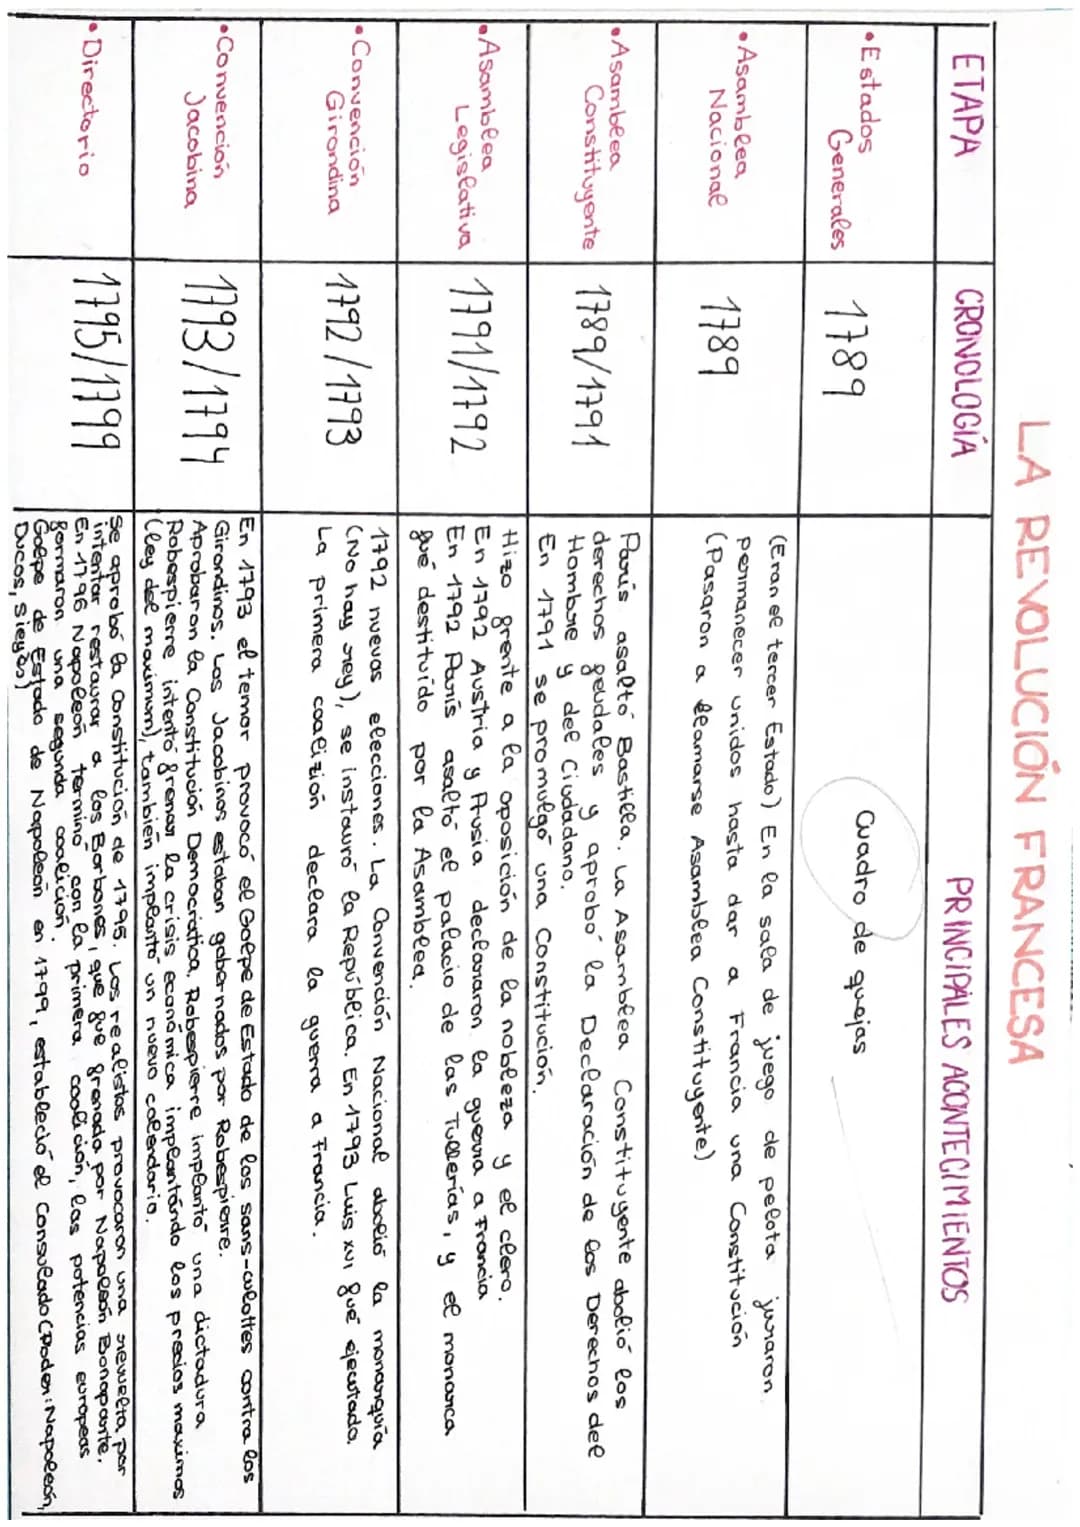 LA REVOLUCIÓN FRANCESA
ETAPA
CRONOLOGÍA
PRINCIPALES ACONTECIMIENTOS
• Estados
Generales
1789
Cuadro de quejas
• Asamblea
Nacional
1789
(Eran el tercer Estado) En la sala de juego de pelota juraron
permanecer unidos hasta dar a Francia una Constitución
(Pasaron a llamarse Asamblea Constituyente)
• Asamblea
Constituyente
1789/1791
París asaltó Bastilla. La Asamblea Constituyente abolió los
derechos feudales y aprobó la Declaración de los Derechos del
Hombre y del Ciudadano.
En 1791 se promulgó una Constitución.
• Asamblea
Legislativa
1791/1792
Hizo frente a la oposición de la nobleza y el clero.
En 1792 Austria y Prusia declararon la guerra a Francia
En 1792 París asaltó el palacio de las Tullerías, y el monarca
fué destituído por la Asamblea.
• Convención
Girondina
1792/1793
1792 nuevas elecciones. La Convención Nacional abolió la monarquía
(No hay rey), se instauró la República. En 1793 Luis XVI fué ejecutado.
La primera coalizión declara la guerra a Francia.
• Convención
Jacobina
1793/1794
En 1793 el temor provocó el Golpe de Estado de los sans-culottes contra los
Girondinos. Los Jacobinos estaban gobernados por Robespierre.
Aprobaron la Constitución Democrática. Robespierre implantó una dictadura
Robespierre intentó frenar la crisis económica implantándo los precios maximos
(ley del maximum), también implantó un nuevo calendario.
• Directorio
1795/1799
Se aprobó la Constitución de 1795. Los realistas provocaron una revuelta por
intentar restaurar a los Borbones, que fue frenado por Napoleón Bonaparte.
En 1796 Napoleón terminó con la primera coalición, las potencias europeas
formaron una segunda coalición.
Golpe de Estado de Napoleón en 1799, estableció el Consulado (Poder: Napoleón,
Ducos, Sieyès)